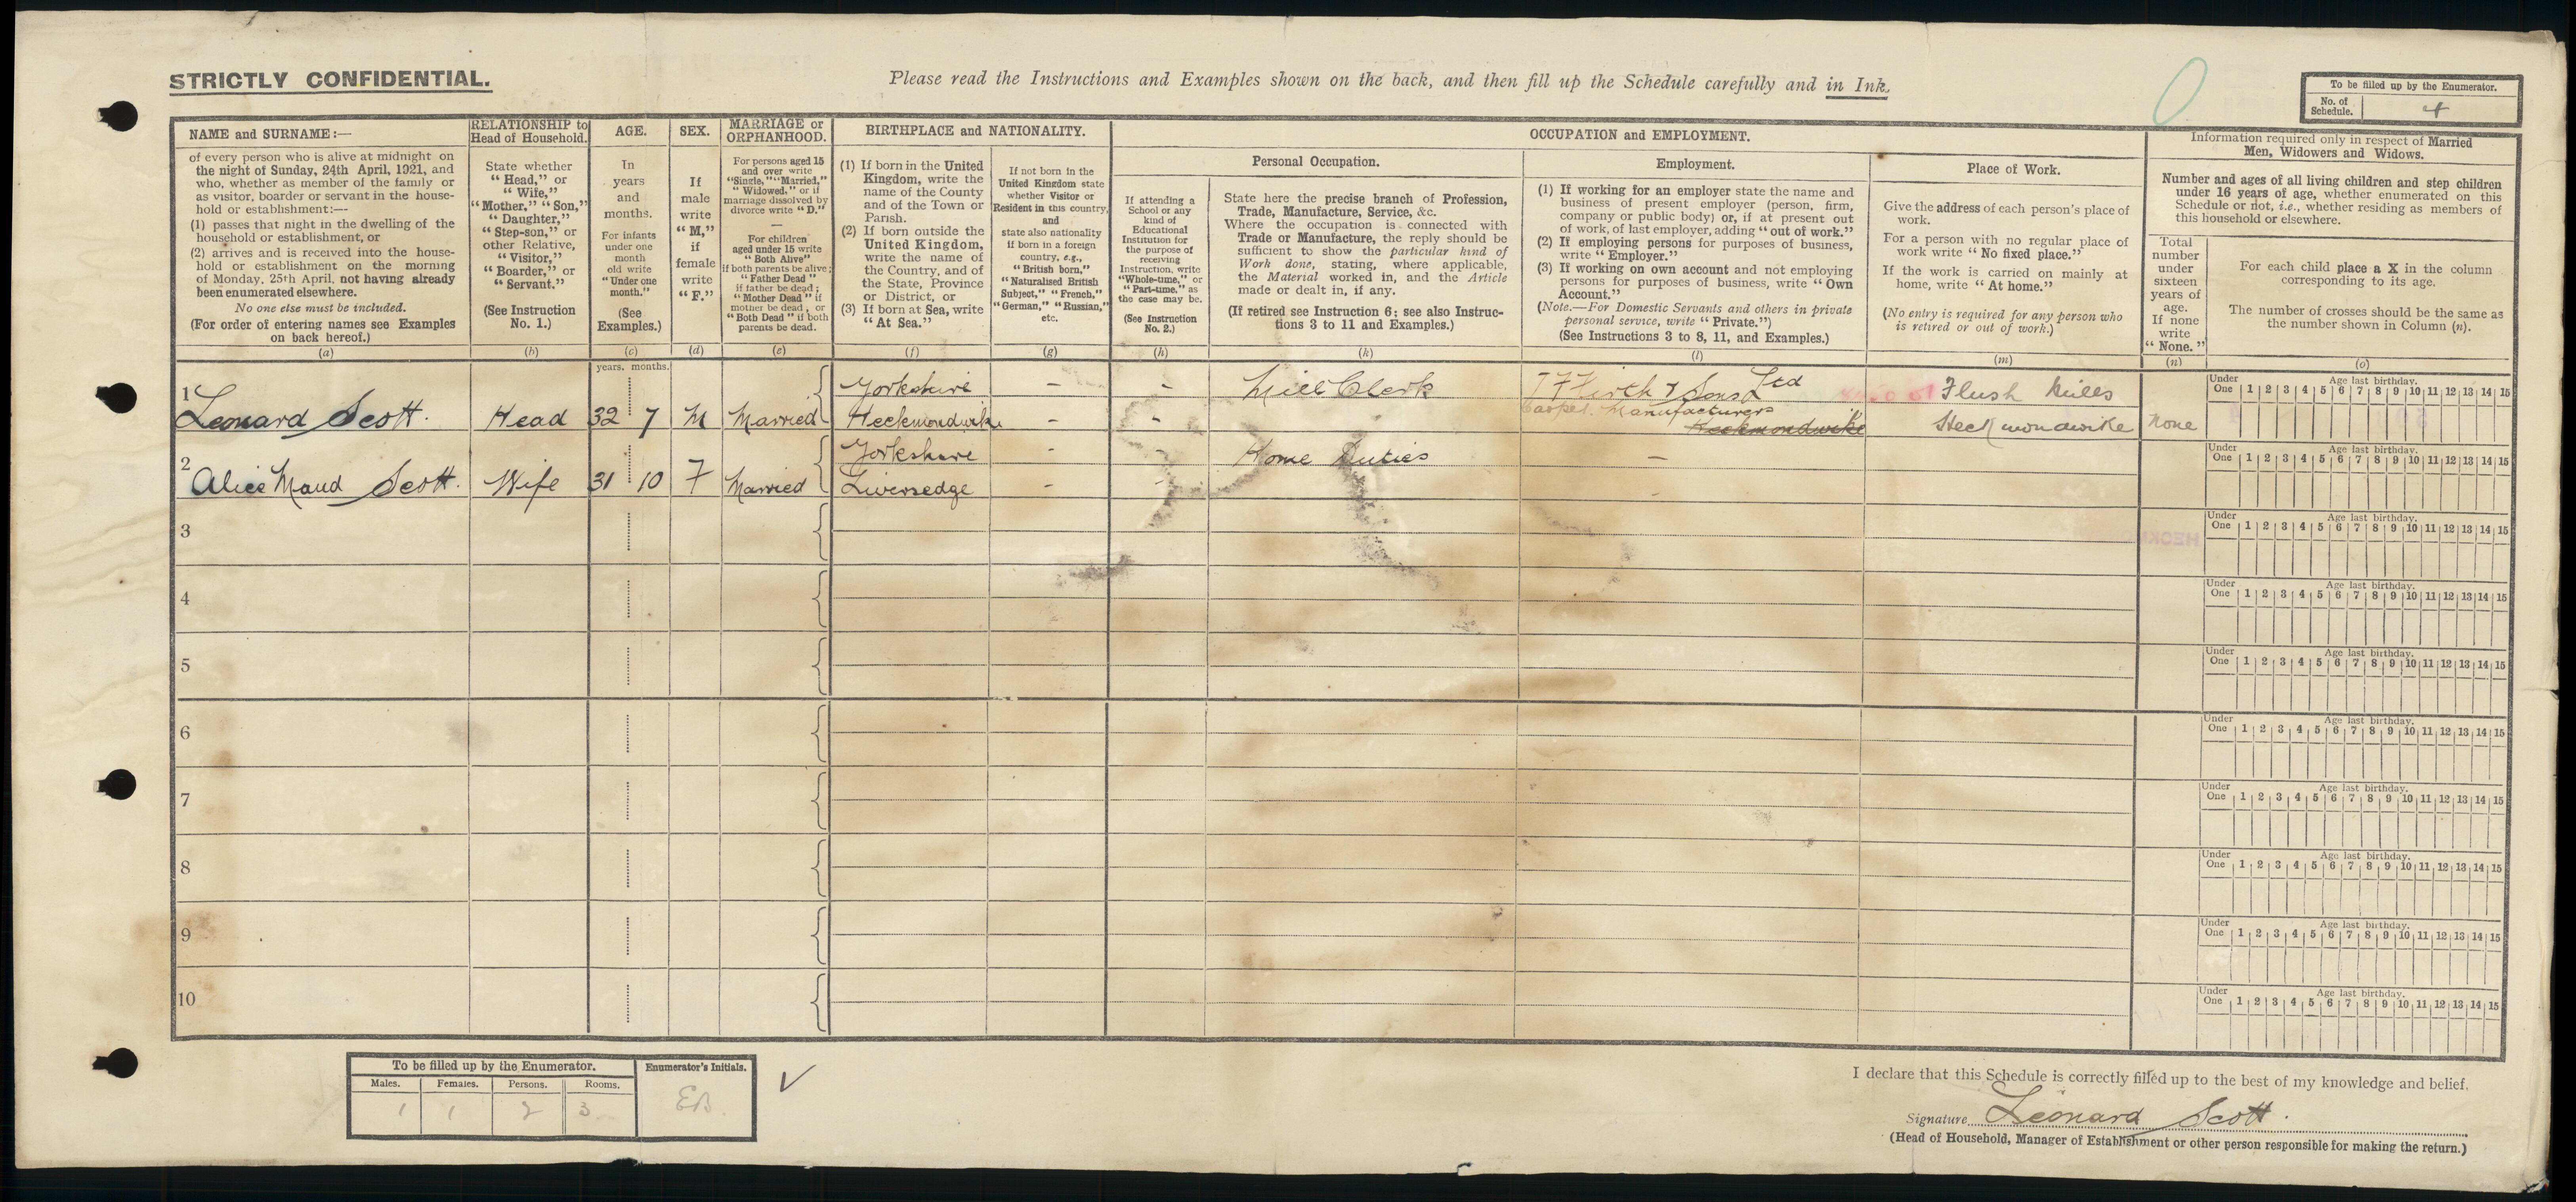 STRICTLY CONFIDENTIAL.
Please read the Instructions and Examples shown on the back, and then fill up the Schedule carefully and in Ink.
To be filled up by the Enumerator.
No. of Schedule. 4
NAME and SURNAME:—
of every person who is alive at midnight on
the night of Sunday, 24th April, 1921, and
who, whether as member of the family or
as visitor, boarder or servant in the house-
hold or establishment:—
(1) passes that night in the dwelling of the
household or establishment, or
(2) arrives and is received into the house-
hold or establishment on the morning
of Monday, 25th April, not having already
been enumerated elsewhere.
No one else must be included.
(For order of entering names see Examples
on back hereof.)
(a)
RELATIONSHIP to
Head of Household.
State whether
"Head," or
"Wife,"
"Mother," "Son,"
"Daughter,"
"Step-son," or
other Relative,
"Visitor,"
"Boarder," or
"Servant."
(See Instruction
No. 1.)
(b)
AGE.
In
years
and
months.
For infants
under one
month
old write
"Under one
month."
(See
Examples.)
(c)
SEX.
If
male
write
"M,"
if
female
write
"F."
(d)
MARRIAGE or
ORPHANHOOD.
For persons aged 15
and over write
"Single," "Married,"
"Widowed," or if
marriage dissolved by
divorce write "D."
—
For children
aged under 15 write
"Both Alive"
if both parents be alive;
"Father Dead"
if father be dead;
"Mother Dead" if
mother be dead, or
"Both Dead" if both
parents be dead.
(e)
BIRTHPLACE and NATIONALITY.
(1) If born in the United
Kingdom, write the
name of the County
and of the Town or
Parish.
(2) If born outside the
United Kingdom,
write the name of
the Country, and of
the State, Province
or District, or
(3) If born at Sea, write
"At Sea."
(f)
If not born in the
United Kingdom state
whether Visitor or
Resident in this country,
and
state also nationality
if born in a foreign
country, e.g.,
"British born,"
"Naturalised British
Subject," "French,"
"German," "Russian,"
etc.
(g)
OCCUPATION and EMPLOYMENT.
Personal Occupation.
If attending a
School or any
kind of
Educational
Institution for
the purpose of
receiving
Instruction, write
"Whole-time," or
"Part-time," as
the case may be.
(See Instruction
No. 2.)
(h)
State here the precise branch of Profession,
Trade, Manufacture, Service, &c.
Where the occupation is connected with
Trade or Manufacture, the reply should be
sufficient to show the particular kind of
Work done, stating, where applicable,
the Material worked in, and the Article
made or dealt in, if any.
(If retired see Instruction 6; see also Instruc-
tions 3 to 11 and Examples.)
(k)
Employment.
(1) If working for an employer state the name and
business of present employer (person, firm,
company or public body) or, if at present out
of work, of last employer, adding "out of work."
(2) If employing persons for purposes of business,
write "Employer."
(3) If working on own account and not employing
persons for purposes of business, write "Own
Account."
(Note.—For Domestic Servants and others in private
personal service, write "Private.")
(See Instructions 3 to 8, 11, and Examples.)
(l)
Place of Work.
Give the address of each person's place of
work.
For a person with no regular place of
work write "No fixed place."
If the work is carried on mainly at
home, write "At home."
(No entry is required for any person who
is retired or out of work.)
(m)
Information required only in respect of Married
Men, Widowers and Widows.
Number and ages of all living children and step children
under 16 years of age, whether enumerated on this
Schedule or not, i.e., whether residing as members of
this household or elsewhere.
Total
number
under
sixteen
years of
age.
If none
write
"None."
(n)
For each child place a X in the column
corresponding to its age.
The number of crosses should be the same as
the number shown in Column (n).
(o)
years. months.
1 Leonard Scott. Head 32 7 M Married Yorkshire Heckmondwike - - Mill Clerk T F Firth & Sons Ltd
Carpet Manufacturers
Heckmondwike
Flush Mills
Heckmondwike
None
Under One 1 2 3 4 5 6 7 8 9 10 11 12 13 14 15
Age last birthday.
2 Alice Maud Scott. Wife 31 10 F Married Yorkshire Liversedge - - Home Duties —
Under One 1 2 3 4 5 6 7 8 9 10 11 12 13 14 15
Age last birthday.
3
Under One 1 2 3 4 5 6 7 8 9 10 11 12 13 14 15
Age last birthday.
4
Under One 1 2 3 4 5 6 7 8 9 10 11 12 13 14 15
Age last birthday.
5
Under One 1 2 3 4 5 6 7 8 9 10 11 12 13 14 15
Age last birthday.
6
Under One 1 2 3 4 5 6 7 8 9 10 11 12 13 14 15
Age last birthday.
7
Under One 1 2 3 4 5 6 7 8 9 10 11 12 13 14 15
Age last birthday.
8
Under One 1 2 3 4 5 6 7 8 9 10 11 12 13 14 15
Age last birthday.
9
Under One 1 2 3 4 5 6 7 8 9 10 11 12 13 14 15
Age last birthday.
10
Under One 1 2 3 4 5 6 7 8 9 10 11 12 13 14 15
Age last birthday.
To be filled up by the Enumerator.
Males. Females. Persons. Rooms.
1 1 2 3
Enumerator's Initials.
EB.
I declare that this Schedule is correctly filled up to the best of my knowledge and belief.
Signature Leonard Scott.
(Head of Household, Manager of Establishment or other person responsible for making the return.)